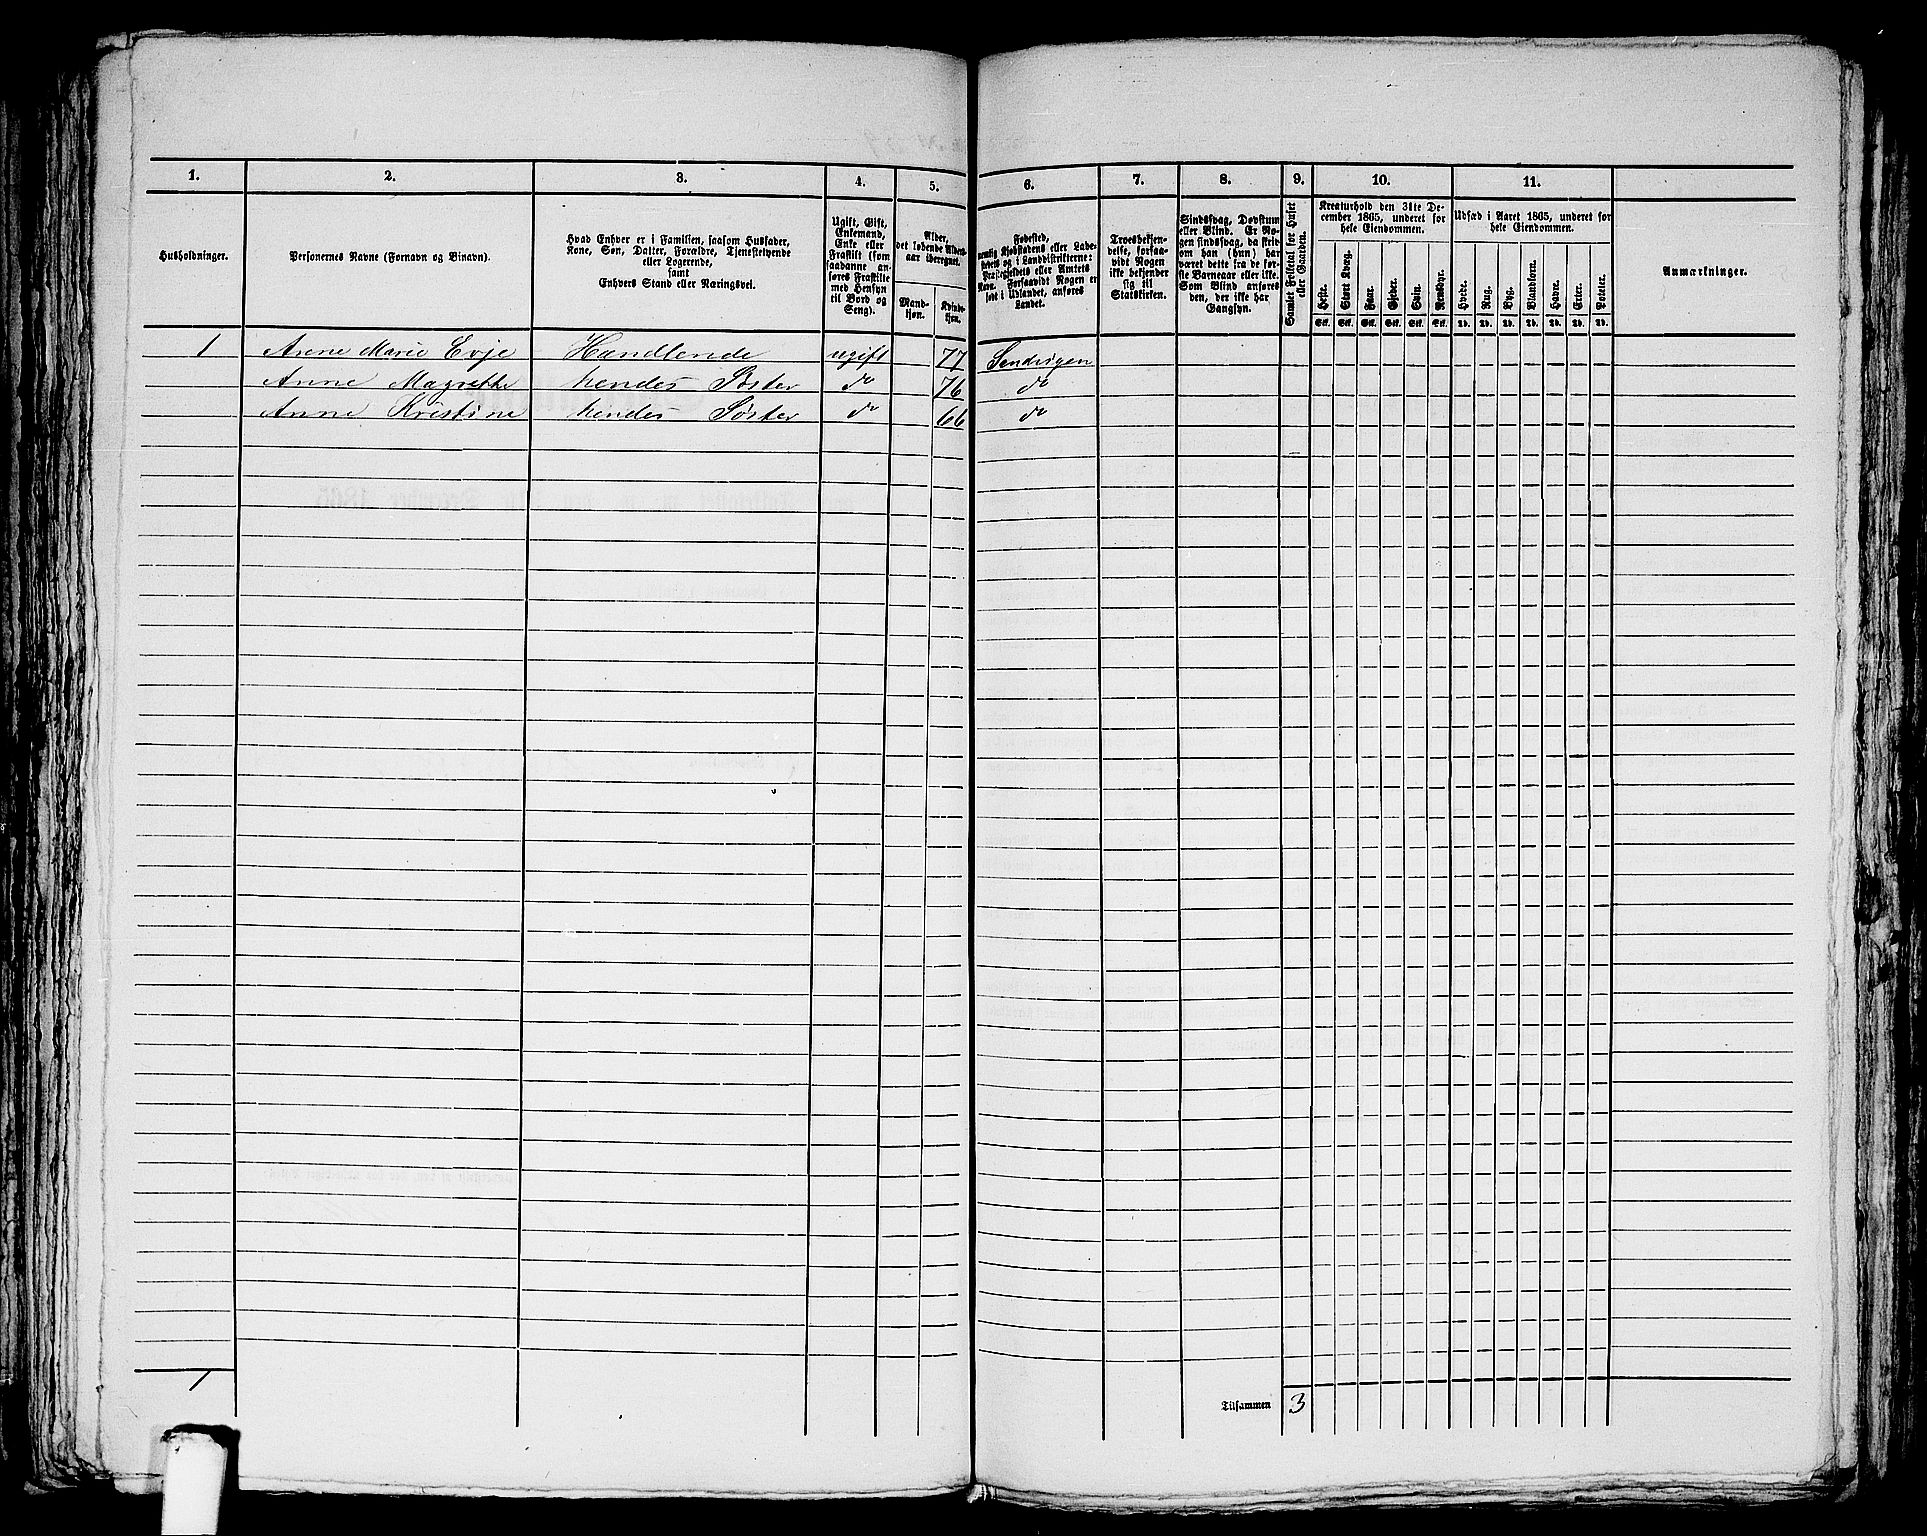 1. 2. 3. 4. 5. 6. 7. 8. 9. 10. 11.
Husholdninger.
Personernes Navne (Fornavn og Binavn).
Hvad Enhver er i Familien, saasom Husfader,
Kone, Søn, Datter, Forældre, Tjenestetyende
eller Logerende,
samt
Enhvers Stand eller Næringsvei.
Ugift, Gift,
Enkemand,
Enke eller
Fraskilt (som
saadanne an-
føres Fraskilte
med Hensyn
til Bord og
Seng).
Alder,
det løbende Alders-
aar iberegnet.
Mand-
kjøn.
Kvinde-
kjøn.
Fødested,
nemlig Kjøbstadens eller Lade-
stedets og i Landdistrikterne:
Præstegjeldets eller Amtets
Navn. Forsaavidt Nogen er
født i Udlandet, anføres
Landet.
Troesbekjen-
delse, forsaa-
vidt Nogen
ikke bekjender
sig til
Statskirken.
Sindssvag, Døvstum
eller Blind. Er No-
gen sindssvag, da skrives
om han (hun) har
været dette fra de før-
ste Barneaar eller ikke.
Som Blind anføres
den, der ikke har
Gangsyn.
Samlet Folketal for Huset
eller Gaarden.
Kreaturhold den 31te De-
cember 1865, underet for
hele Eiendommen.
Heste. Stort Kvæg. Faar. Gjeder. Svin. Rensdyr.
Stk. Stk. Stk. Stk. Stk. Stk.
Udsæd i Aaret 1865, underet for
hele Eiendommen.
Hvede. Rug. Byg. Blandkorn. Havre. Erter. Poteter.
Td. Td. Td. Td. Td. Td. Td.
Anmærkninger.
1 Anne Marie Evje Handlende ugift 77
Anne Magrethe hendes Søster do 76 do
Anne Kristine hendes Søster do 66 do
1
Tilsammen 3